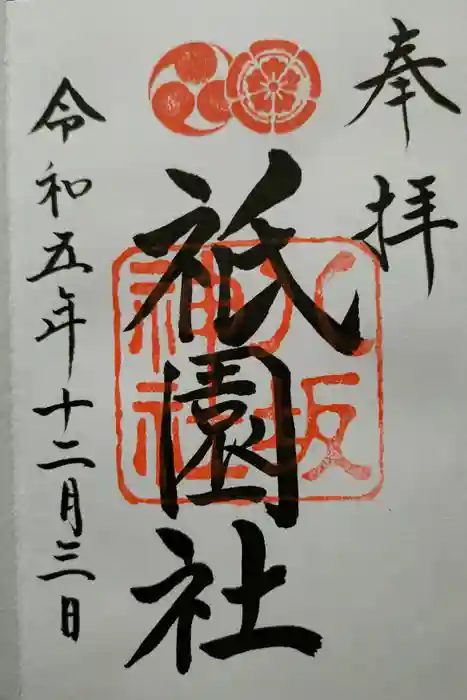 奉拝
八坂神社
祇園社
令和五年十二月三日